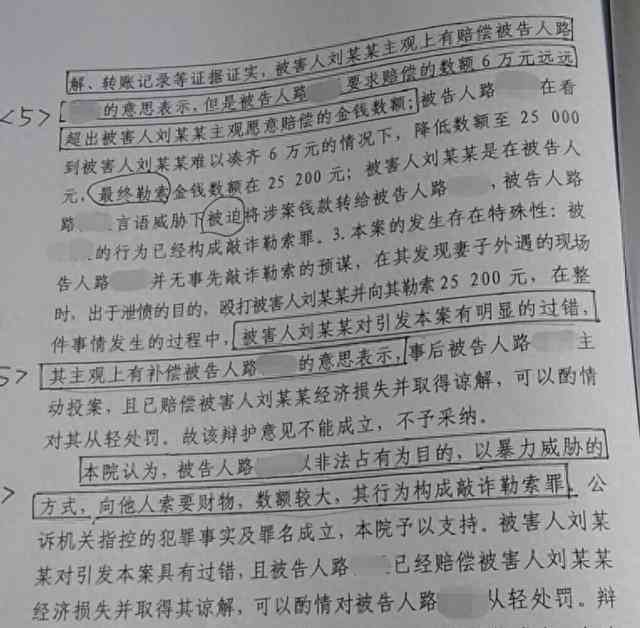 解、转账记录等证据证实，被害人刘某某主观上有赔偿被告人路
<5> 的意思表示，但是被告人路 要求赔偿的数额6万元远远
超出被害人刘某某主观愿意赔偿的金钱数额；被告人路 在看
到被害人刘某某难以凑齐6万元的情况下，降低数额至25 000
元，最终勒索金钱数额在25 200元；被害人刘某某是在被告人
路 言语威胁下被迫将涉案钱款转给被告人路 ，被告人路
的行为已经构成敲诈勒索罪。3.本案的发生存在特殊性：被
告人路 并无事先敲诈勒索的预谋，在其发现妻子外遇的现场
时，出于泄愤的目的，殴打被害人刘某某并向其勒索25 200元，在整
件事情发生的过程中，被害人刘某某对引发本案有明显的过错，
5> 其主观上有补偿被告人路 的意思表示，事后被告人路 主
动投案，且已赔偿被害人刘某某经济损失并取得谅解，可以酌情
对其从轻处罚。故该辩护意见不能成立，不予采纳。
本院认为，被告人路 以非法占有为目的，以暴力威胁的
> 方式，向他人索要财物，数额较大，其行为构成敲诈勒索罪。公
诉机关指控的犯罪事实及罪名成立，本院予以支持。被害人刘某
某对引发本案具有过错，且被告人路 已经赔偿被害人刘某某
经济损失并取得其谅解，可以酌情对被告人路 从轻处罚。辩